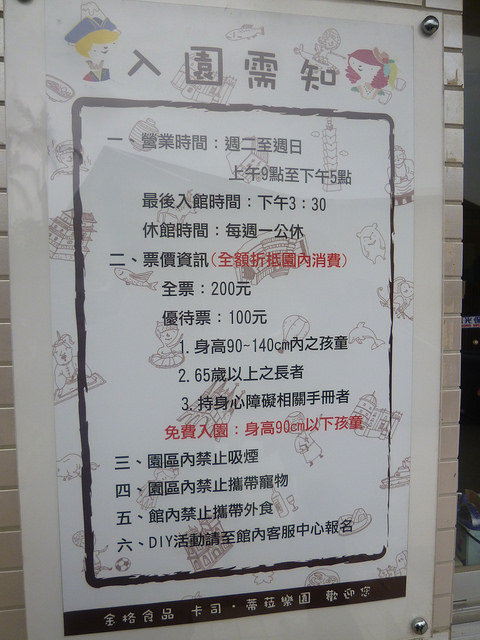 入園需知
一、營業時間：週二至週日
上午9點至下午5點
最後入館時間：下午3：30
休館時間：每週一公休
二、票價資訊(全額折抵園內消費)
全票：200元
優待票：100元
1. 身高90~140cm內之孩童
2. 65歲以上之長者
3. 持身心障礙相關手冊者
免費入園：身高90cm以下孩童
三、園區內禁止吸煙
四、園區內禁止攜帶寵物
五、館內禁止攜帶外食
六、DIY活動請至館內客服中心報名
金格食品 卡司・蒂菈樂園 歡迎您